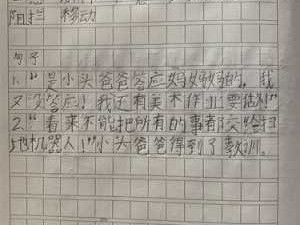 阻拦 移动
句子
1.“是小头爸爸答应妈妈的,我
又没答应!我还有美术作业要画”
2.“看来不能把所有的事都交给扫
地机器人!”小头爸爸得到了教训。